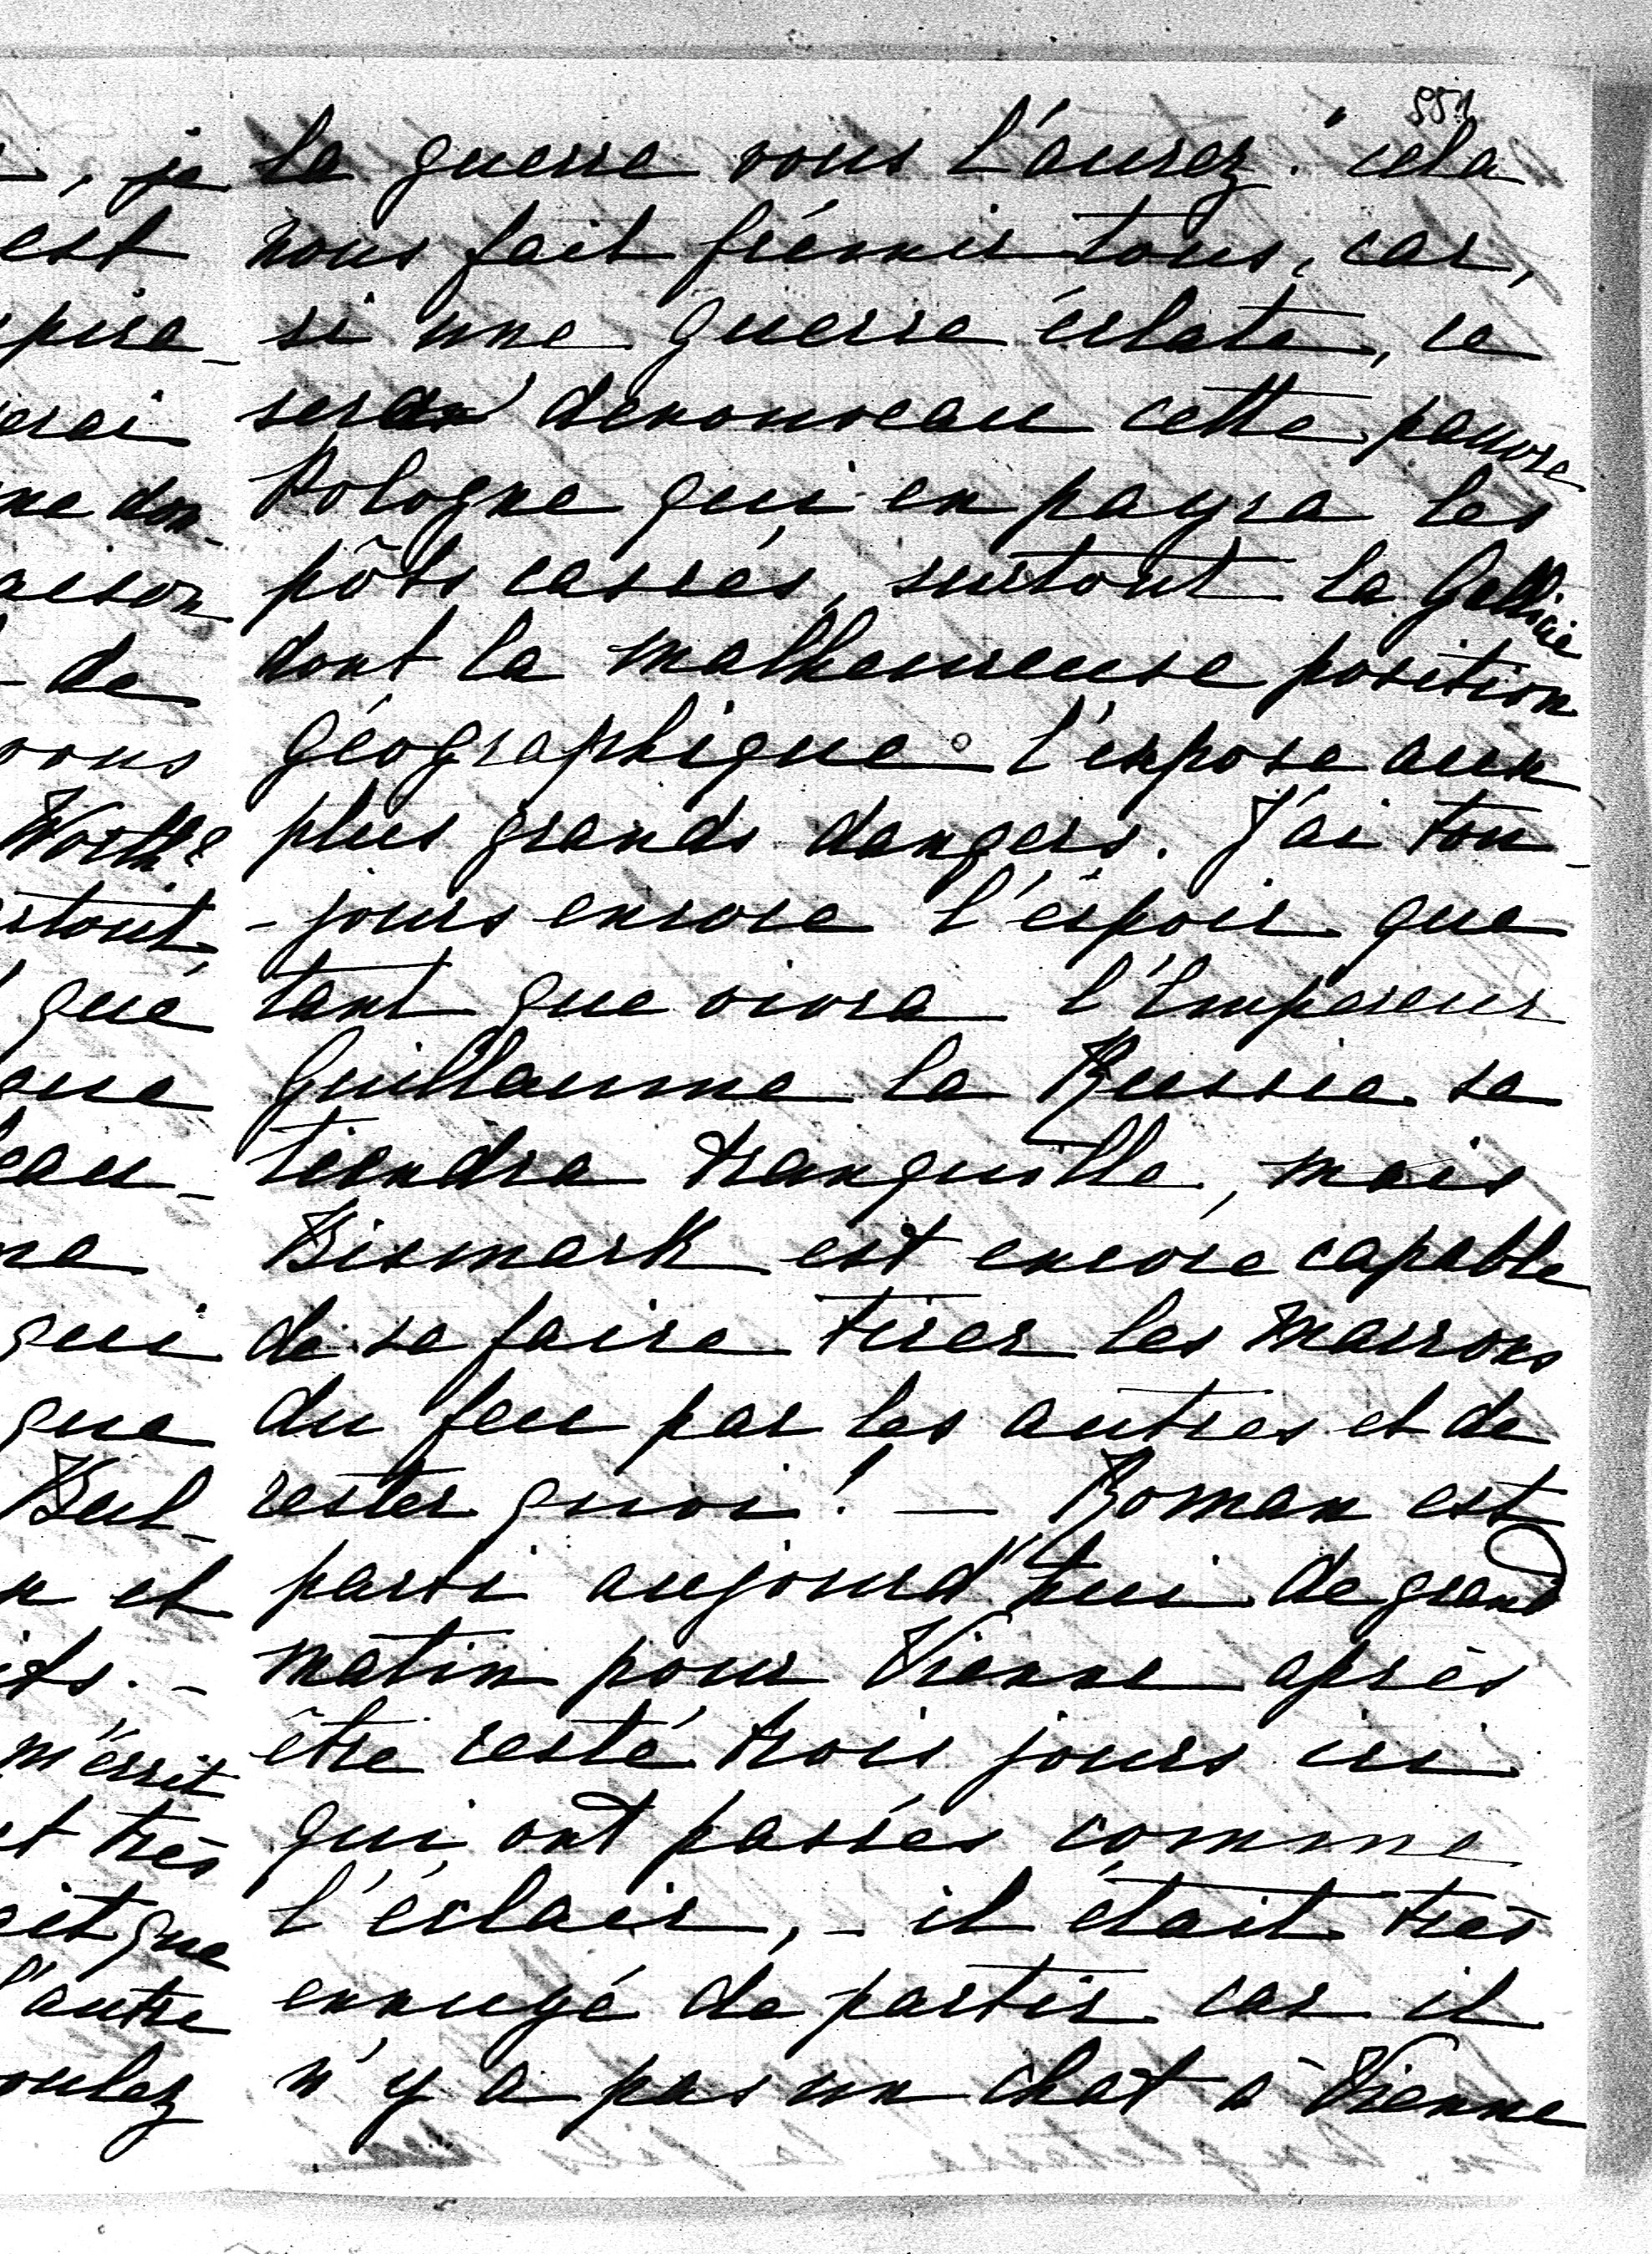 551
la guerre vous l'aurez." cela
nous fait frémir tous, car,
si une guerre éclate, ce
sera denouveau cette pauvre
Pologne qui en payra les
pôts cassés, surtout la Gallicie
dont la malheureuse position
géographique l'expose aux
plus grands dangers. J'ai tou-
-jours encore l'éspoir que
tant que vivra l'Empereur
Guillaume la Russie se
tiendra tranquille, mais
Bismark est encore capable
de se faire tirer les marrons
du feu par les autres et de
rester quoi! — Roman est
parti aujourd'hui de grand
matin pour Vienne après
être resté trois jours ici
qui ont passés comme
l'éclair, - il était très
ennuyé de partir car il
n'y a pas un chat à Vienne
je
est
pire-
erai
ne don-
aison
de
vous
Worth?
rtout,
que
que
eau-
na
qui
que
Bul-
et
its. -
m'écrit
t très
ait que
l'autre
oulez